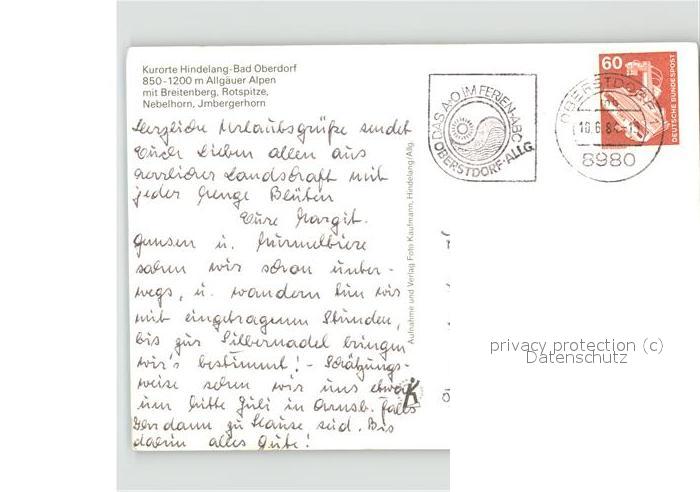 Kurorte Hindelang-Bad Oberdorf
850-1200 m Allgäuer Alpen
mit Breitenberg, Rotspitze,
Nebelhorn, Jmbergerhorn
Herzliche Urlaubsgrüße sendet
Euch Lieben allen aus
herrlicher Landschaft mit
jeder Menge Blüten
Eure Margit.
Gemsen u. Murmeltiere
sahen wir schon unter-
wegs, u. wandern tun wir
mit eingetragenen Stunden,
bis zur Silbernadel bringen
wir's bestimmt! - Schätzungs-
weise sehen wir uns etwa
um Mitte Juli in Arnsb. falls
Ihr dann zu Hause seid. Bis
dahin alles Gute!
Aufnahme und Verlag Foto Kaufmann, Hindelang/Allg.
DAS A+O IM FERIEN-ABC
OBERSTDORF-ALLG.
OBERSTDORF
8980
60
DEUTSCHE BUNDESPOST
privacy protection (c)
Datenschutz